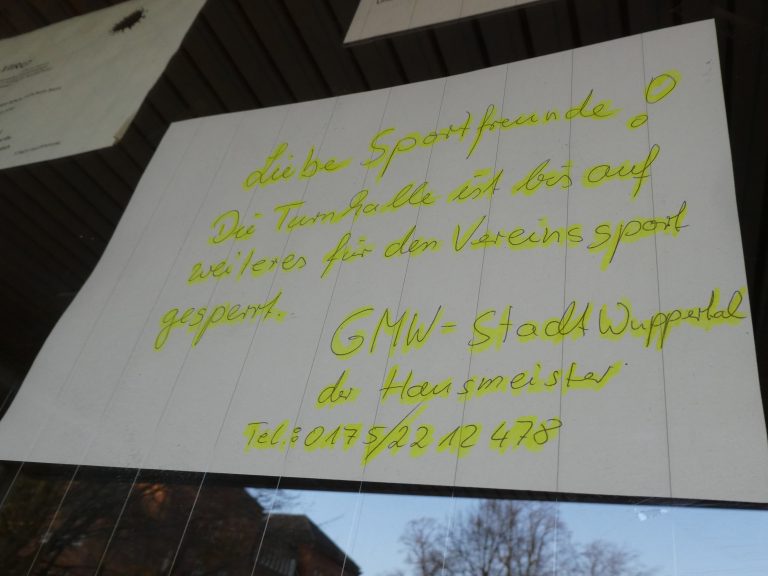 Liebe Sportfreunde!
Die Turnhalle ist bis auf
weiteres für den Vereinssport
gesperrt.
GMW-Stadt Wuppertal
der Hausmeister
Tel.: 0175/2212478